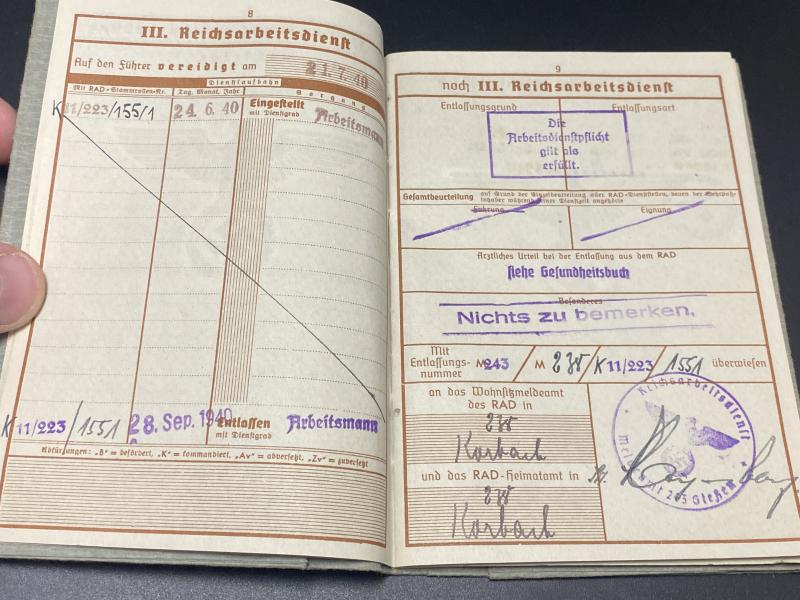 8
III. Reichsarbeitsdienst
Auf den Führer vereidigt am 21.7.40
Dienstlaufbahn
Mit RAD-Stammrollen-Nr. Tag, Monat, Jahr Vorgang
K 11/223/155/1 24.6.40 Eingestellt mit Dienstgrad Arbeitsmann
K 11/223/1551 28. Sep. 1940 Entlassen mit Dienstgrad Arbeitsmann
Abkürzungen: „B“ = befördert, „K“ = kommandiert, „Av“ = abversetzt, „Zv“ = zuversetzt
9
noch III. Reichsarbeitsdienst
Entlassungsgrund Entlassungsart
Die
Arbeitsdienstpflicht
gilt als
erfüllt.
Gesamtbeurteilung auf Grund der Einzelbeurteilung aller RAD-Dienststellen, denen der Wehrpaß-
inhaber während seiner Dienstzeit angehörte
Führung Eignung
Ärztliches Urteil bei der Entlassung aus dem RAD
siehe Gesundheitsbuch
Besonderes
Nichts zu bemerken.
Mit
Entlassungs-
nummer M 243 / M 238 / K 11/223 / 1551 überwiesen
an das Wohnsitzmeldeamt
des RAD in
238
Korbach
und das RAD-Heimatamt in
238
Korbach
Reichsarbeitsdienst
Meldeamt 243 Gießen